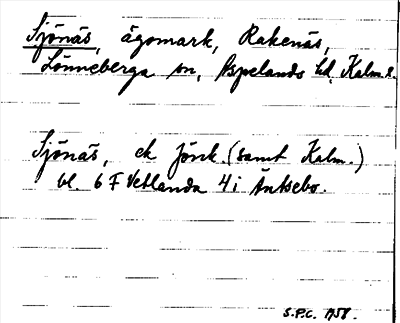 Sjönäs, ägomark, Rakenäs,
Lönneberga sn, Aspelands hd, Kalm. l.
Sjönäs, ek Jönk. (samt Kalm.)
bl. 6 F Vetlanda 4 i Äntsebo.
S.P.C. 1958.